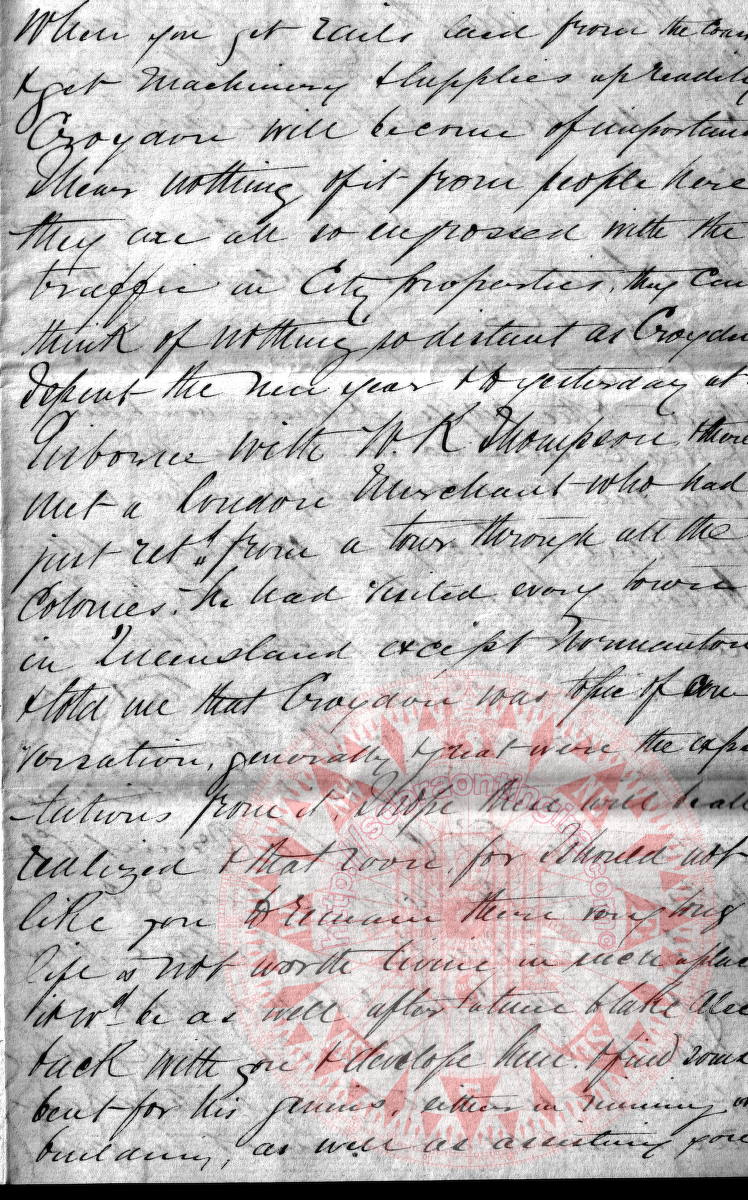 When you get rails laid from the
& get Machinery & supplies up readily
Croydon will become of
I hear nothing of it from people here
they are all so engrossed with the
traffic in City properties, they can
think of nothing so distant as
I spent the new year & to yesterday at
Gisborne with W. K. Thompson & there
met a London Merchant who had
just retd. from a tour through all the
Colonies. He had visited every town
in Queensland except Normanton
& told me that Croydon was topic of con
versation, generally & great were the
tations from it. I hope these will be all
realized & that soon, for I should not
like you to remain there very long
life is not worth living in such a place
it wd. be as well after a time to take
back with you & develope him & find some
bent for his genius, either in mining or
building, as well as assisting you